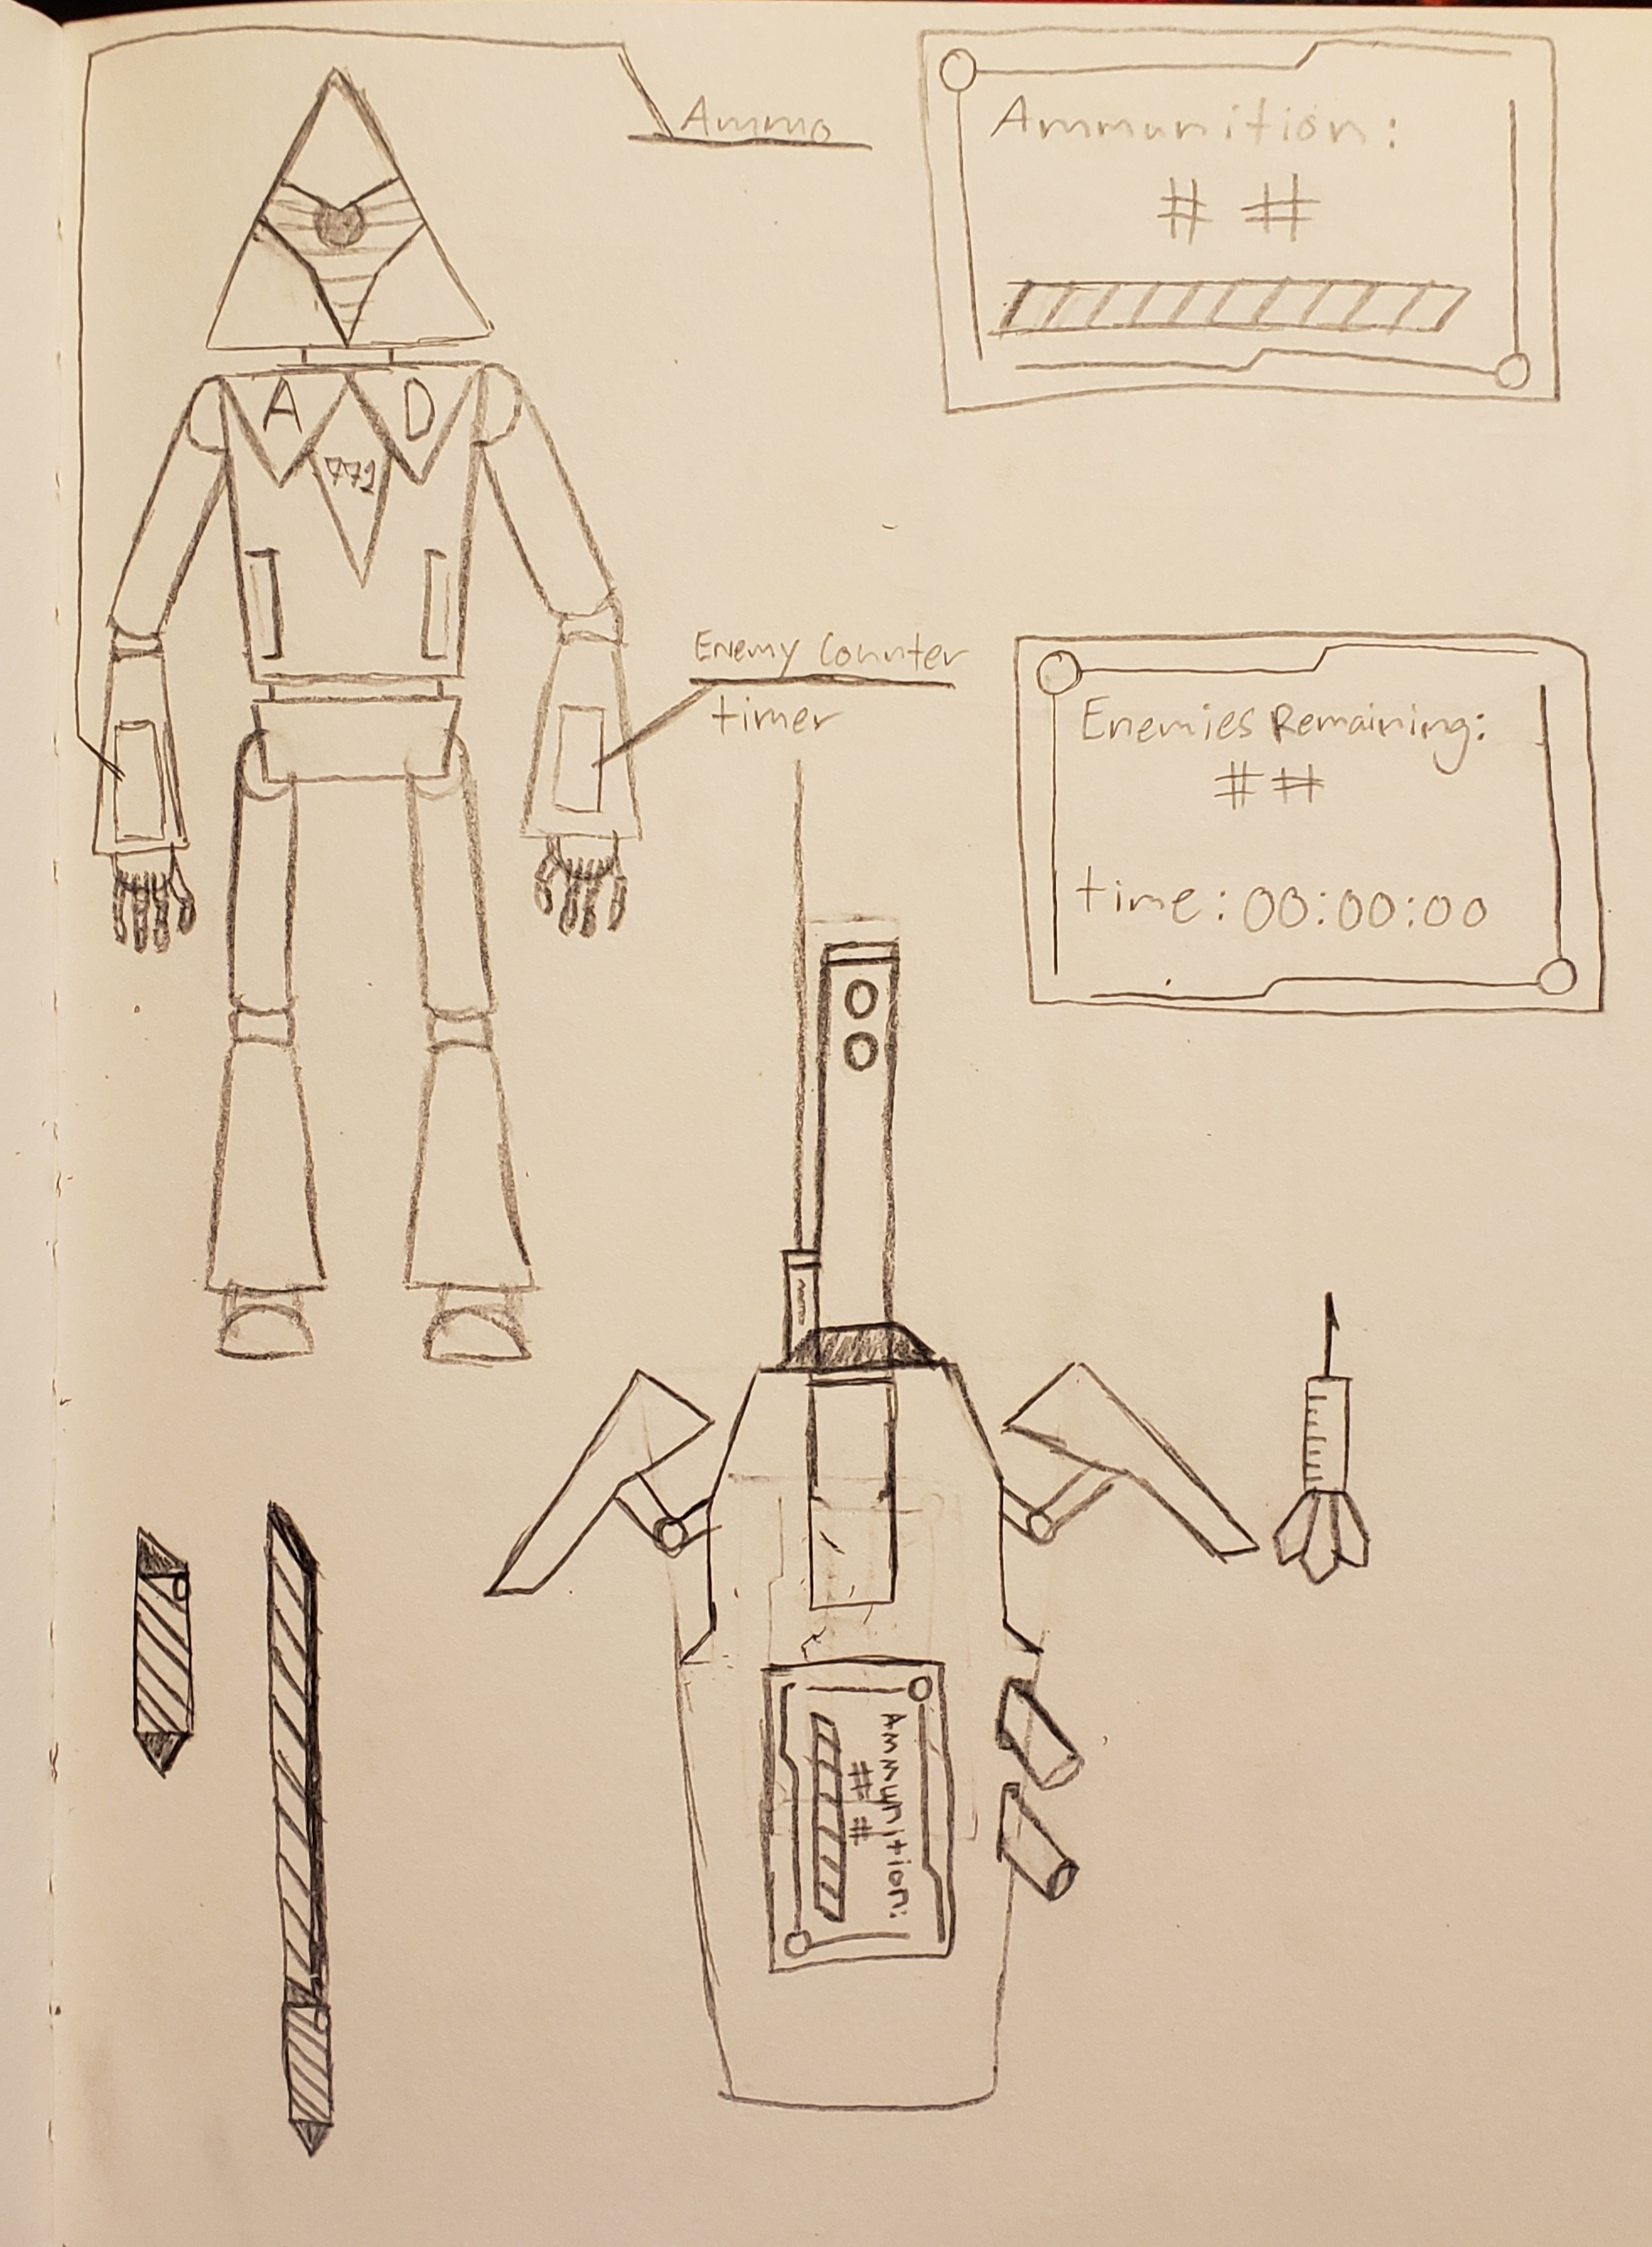 Ammo
Ammunition:
# #
A D
771
Enemy Counter
timer
Enemies Remaining:
# #
time: 00:00:00
Ammunition:
# #